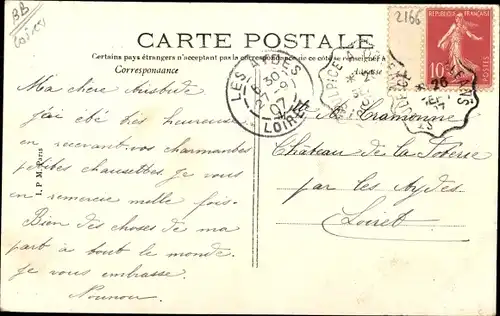 BB
Loiret
2166
CARTE POSTALE
Certains pays étrangers n'acceptent pas la correspondance de ce côté se renseigner à
Correspondance
RÉPUBLIQUE FRANÇAISE
10
LES AYDES
6 30
27-9
07
LOIRET
26
SEPT
07
Ma chère
j'ai été très heureuse
en recevant vos charmantes
petites chaussettes je vous
en remercie mille fois.
Bien des choses de ma
part à tout le monde.
je vous embrasse.
Nounou
Mr. Cramonne
Château de la
par les Aydes
Loiret
I. P. M. Paris